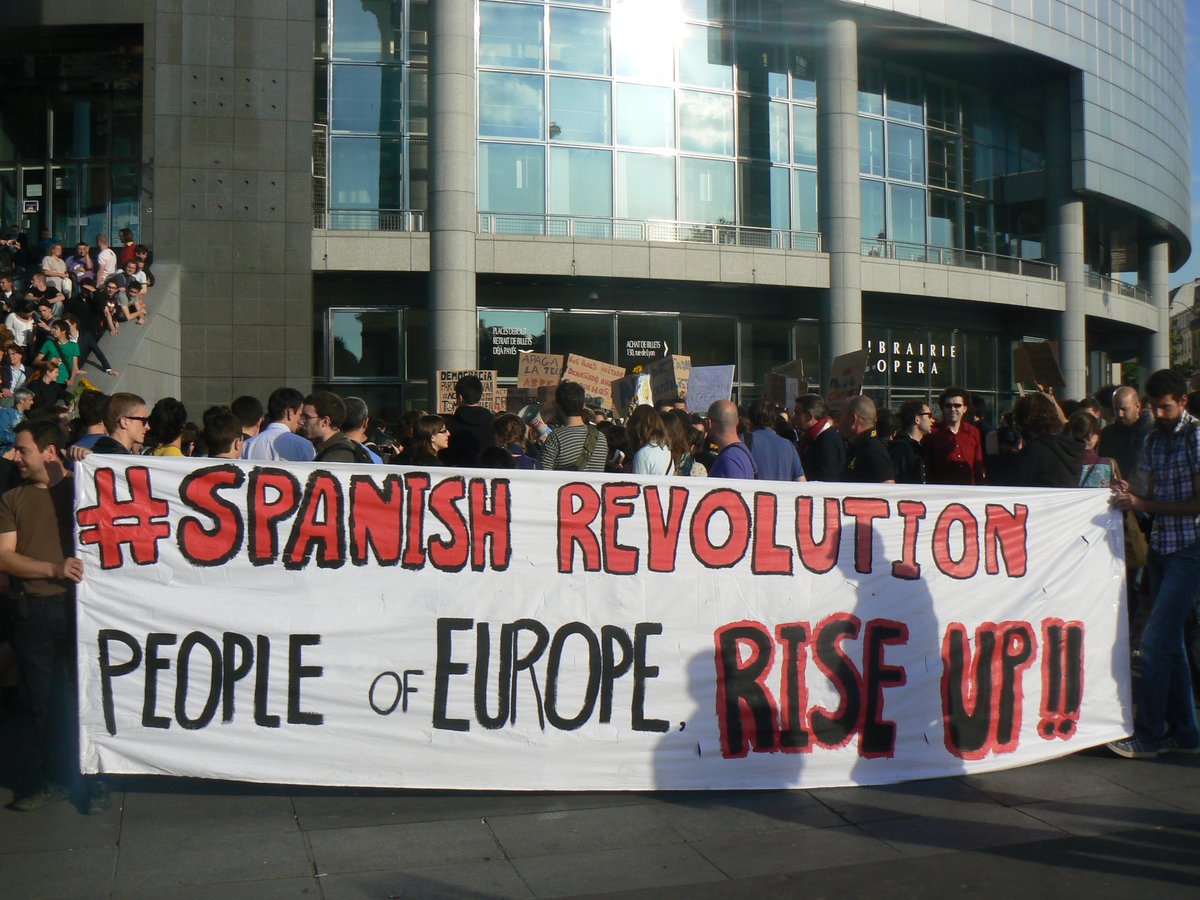 PLACES DEBOUT
RETRAIT DE BILLETS
DÉJÀ PAYÉS
ACHAT DE BILLETS
130, rue de Lyon
LIBRAIRIE
OPERA
DEMOCRACIA
APAGA
LA TELE
ABRE
#SPANISH REVOLUTION
PEOPLE OF EUROPE, RISE UP!!